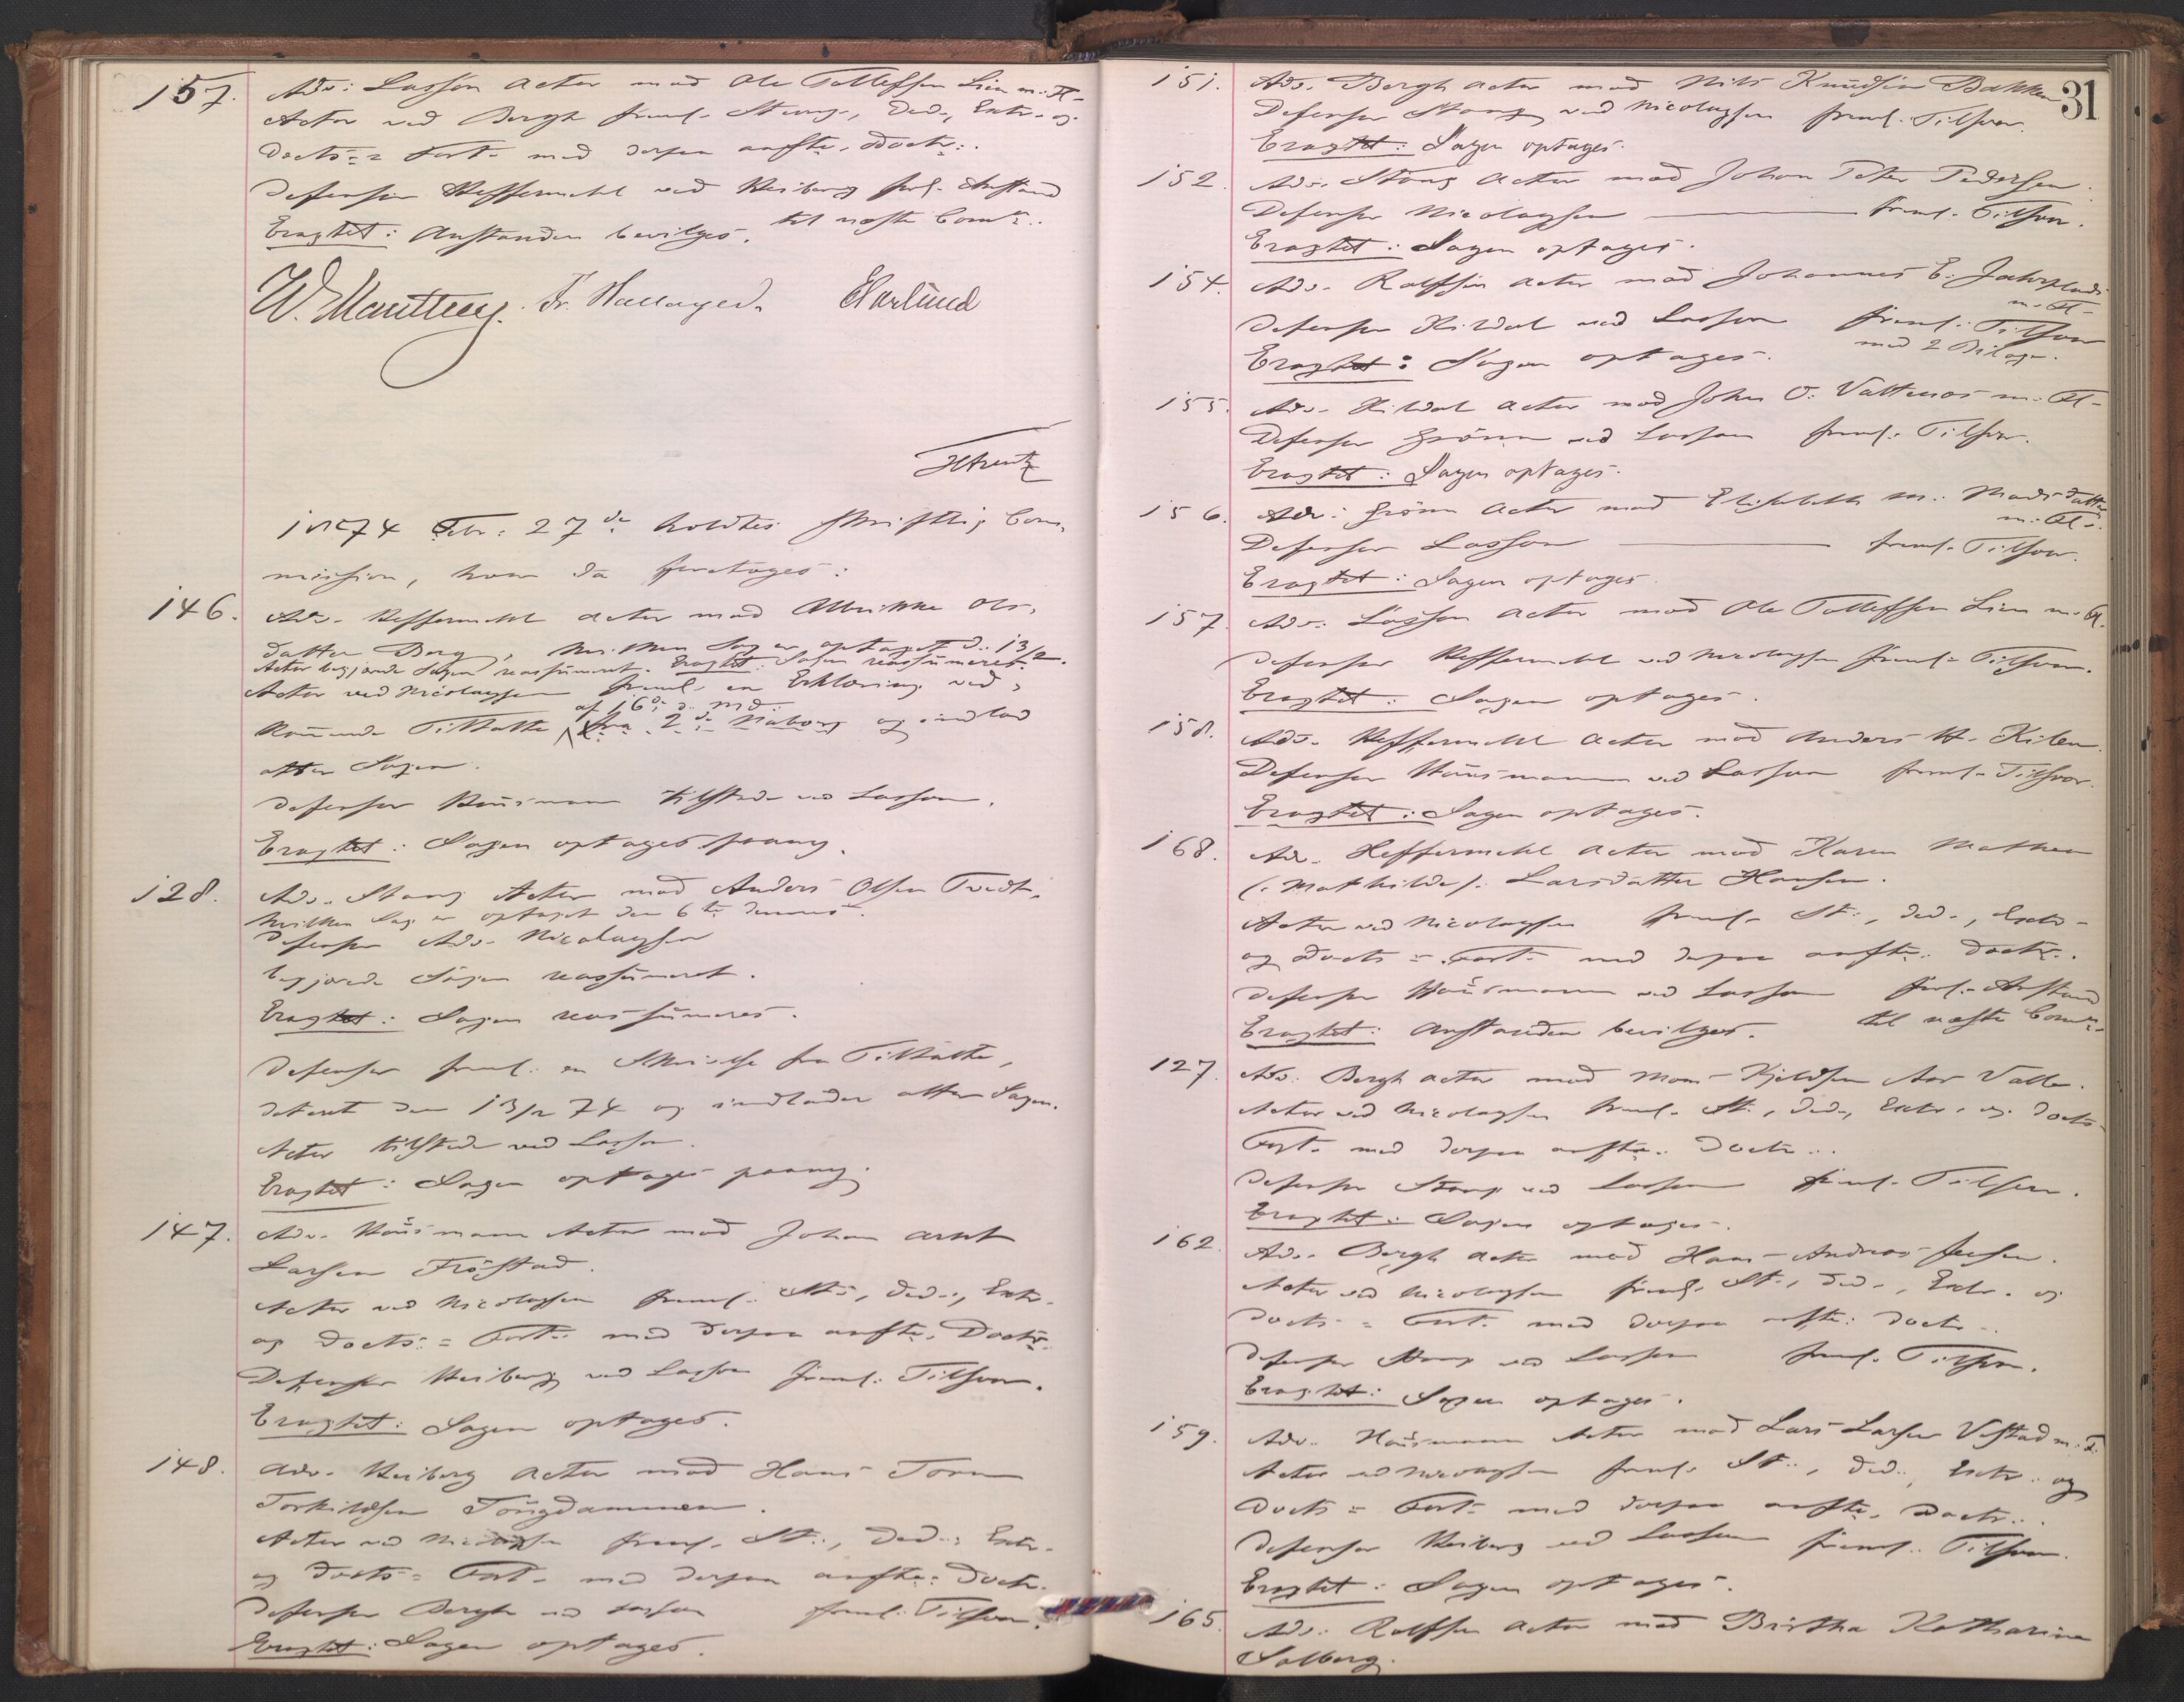 157. Adv: Lasson Actor mod Ole Tollefsen Lien m: Fl-
Actor ved Bergh freml. Stevng:, Ded:, Extr. og
Docts:= Forts. med derpaa anfte. Doctr:.
Defensor Heffermehl ved Heiberg forl. Anstand
til næste Comn:.
Eragtet: Anstanden bevilges.
W. Fr. Hallager. E Harlund
1874 Febr: 27de holdtes skriftlig Com-
mission, hvor da foretages:
146. Adv. Heffermehl Actor mod Ulrikke Ols-
datter Berg, hvilken Sag er optaget d: 13/2.
Actor begjærede Sagen reassumeret. Eragtet: Sagen reassumeres.
Actor ved Nicolaysen freml. en Erklæring ved-
af 16de d. Md.
kommende Tiltalte fra 2de Naboer og indlod
atter Sagen.
Defensor Hausmann tilstede ved Lasson.
Eragtet: Sagen optages paany.
128. Adv. Stang Actor mod Anders Olsen Tvedt,
hvilken Sag er optaget den 6te dennes.
Defensor Adv. Nicolaysen
begjærede Sagen reassumeret.
Eragtet: Sagen reassumeres.
Defensor freml. en Skrivelse fra Tiltalte,
dateret den 13/2 74 og indlader atter Sagen.
Actor tilstede ved Lasson.
Eragtet: Sagen optages paany.
147. Adv. Hausmann Actor mod Johan Arnt
Larsen Fröstad.
Actor ved Nicolaysen freml. St:, Ded:, Extr.
og Docts:= Forts: med derpaa anfte. Doctr.
Defensor Heiberg ved Lasson freml. Tilsvar.
Eragtet: Sagen optages.
148. Adv. Heiberg Actor mod Hans Torm
Torkildsen Tangdammen.
Actor ved Nicolaysen freml. St:, Ded:, Extr.
og Docts= Forts. med derpaa anfte: Doctr.
Defensor Bergh ved Lasson freml. Tilsvar.
Eragtet: Sagen optages.
31
151. Adv. Bergh Actor mod Nils Knudsen Bakken
Defensor Stang ved Nicolaysen freml. Tilsvar.
Eragtet: Sagen optages.
152. Adv. Stang Actor mod Johan Peter Pedersen.
Defensor Nicolaysen freml. Tilsvar.
Eragtet: Sagen optages.
154. Adv. Rolfsen Actor mod Johannes E.
m. Fl-
Defensor Hildal ved Lasson freml. Tilsvar
med 2 Bilag.
Eragtet: Sagen optages.
155. Adv. Hildal Actor mod Johan O. Vattenæs m. Fl-
Defensor Grönn ved Lasson freml. Tilsvar.
Eragtet: Sagen optages.
156. Adv: Grönn Actor mod Elisabeth M: Madsdatter
m. Fl:.
Defensor Lasson freml. Tilsvar.
Eragtet: Sagen optages
157. Adv: Lasson Actor mod Ole Tollefsen Lien m. Fl.
Defensor Heffermehl ved Nicolaysen freml= Tilsvar.
Eragtet: Sagen optages.
158. Adv. Heffermehl Actor mod Anders H. Kilen.
Defensor Hausmann ved Lasson freml. Tilsvar.
Eragtet: Sagen optages.
168. Adv. Heffermehl Actor mod Karen Mathea
(: Mathilde): Larsdatter Hansen.
Actor ved Nicolaysen freml. St:, Ded., Extr.
og Docts = Forts. med derpaa anfte. Doctr.
Defensor Hausmann ved Lasson forl. Anstand
til næste Comn.
Eragtet: Anstanden bevilges.
127. Adv. Bergh Actor mod Mons Kjeldsen Aas Valle.
Actor ved Nicolaysen freml. St:, Ded:, Extr. og Docts
Forts. med derpaa anfte. Doctr..
Defensor Stang ved Lasson freml. Tilsvar.
Eragtet: Sagen optages.
162. Adv. Bergh Actor mod Hans Andreas Jensen.
Actor ved Nicolaysen freml. St:, Ded., Extr. og
Docts = Forts. med derpaa anfte: Doctr.
Defensor Stang ved Lasson freml. Tilsvar.
Eragtet: Sagen optages.
159. Adv. Hausmann Actor mod Lars Larsen Vestad m. Fl.
Actor ved Nicolaysen freml. St:, Ded:, Extr: og
Docts = Forts. med derpaa anfte. Doctr..
Defensor Heiberg ved Lasson freml. Tilsvar.
Eragtet: Sagen optages.
165. Adv. Rolfsen Actor mod Birtha Katharina
Solberg.